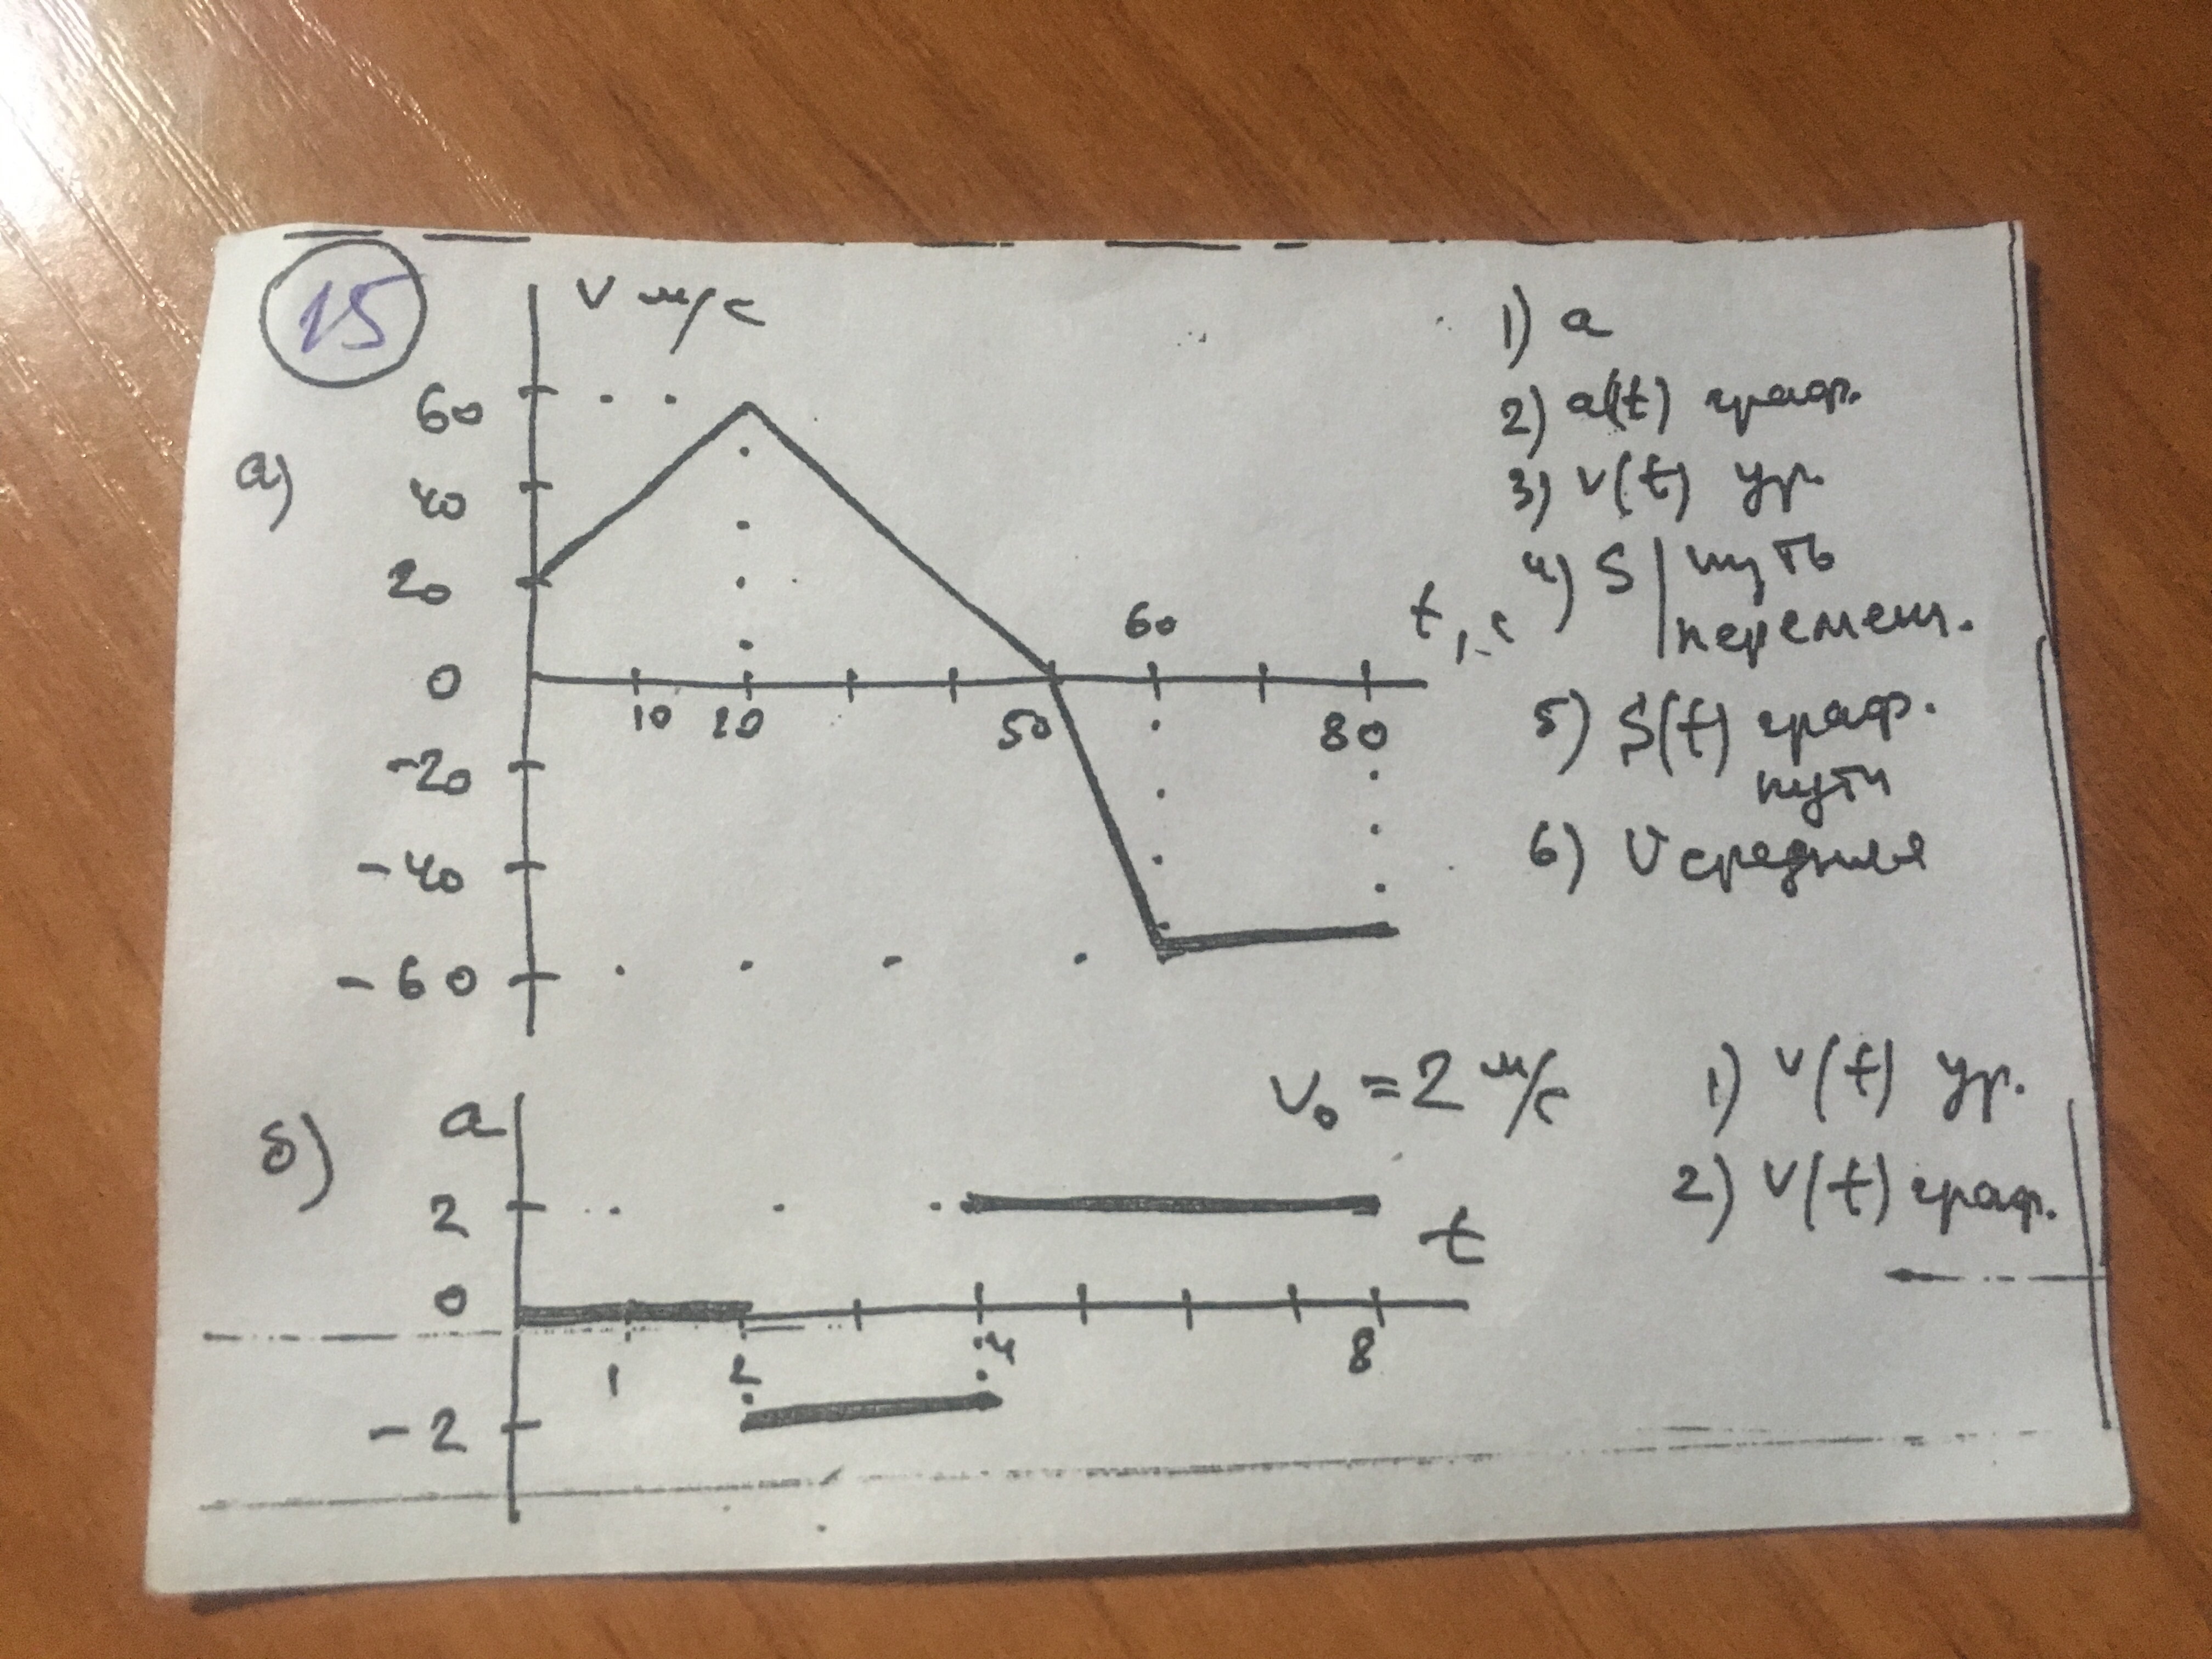 15
V м/с
а)
60
40
20
0
-20
-40
-60
10 20 50 60 80
t, с
1) a
2) a(t) граф.
3) v(t) ур.
4) S | путь
перемещ.
5) S(t) граф.
пути
6) V средняя
б)
a
2
0
-2
1 2 4 8
t
V₀ = 2 м/с
1) v(t) ур.
2) v(t) граф.